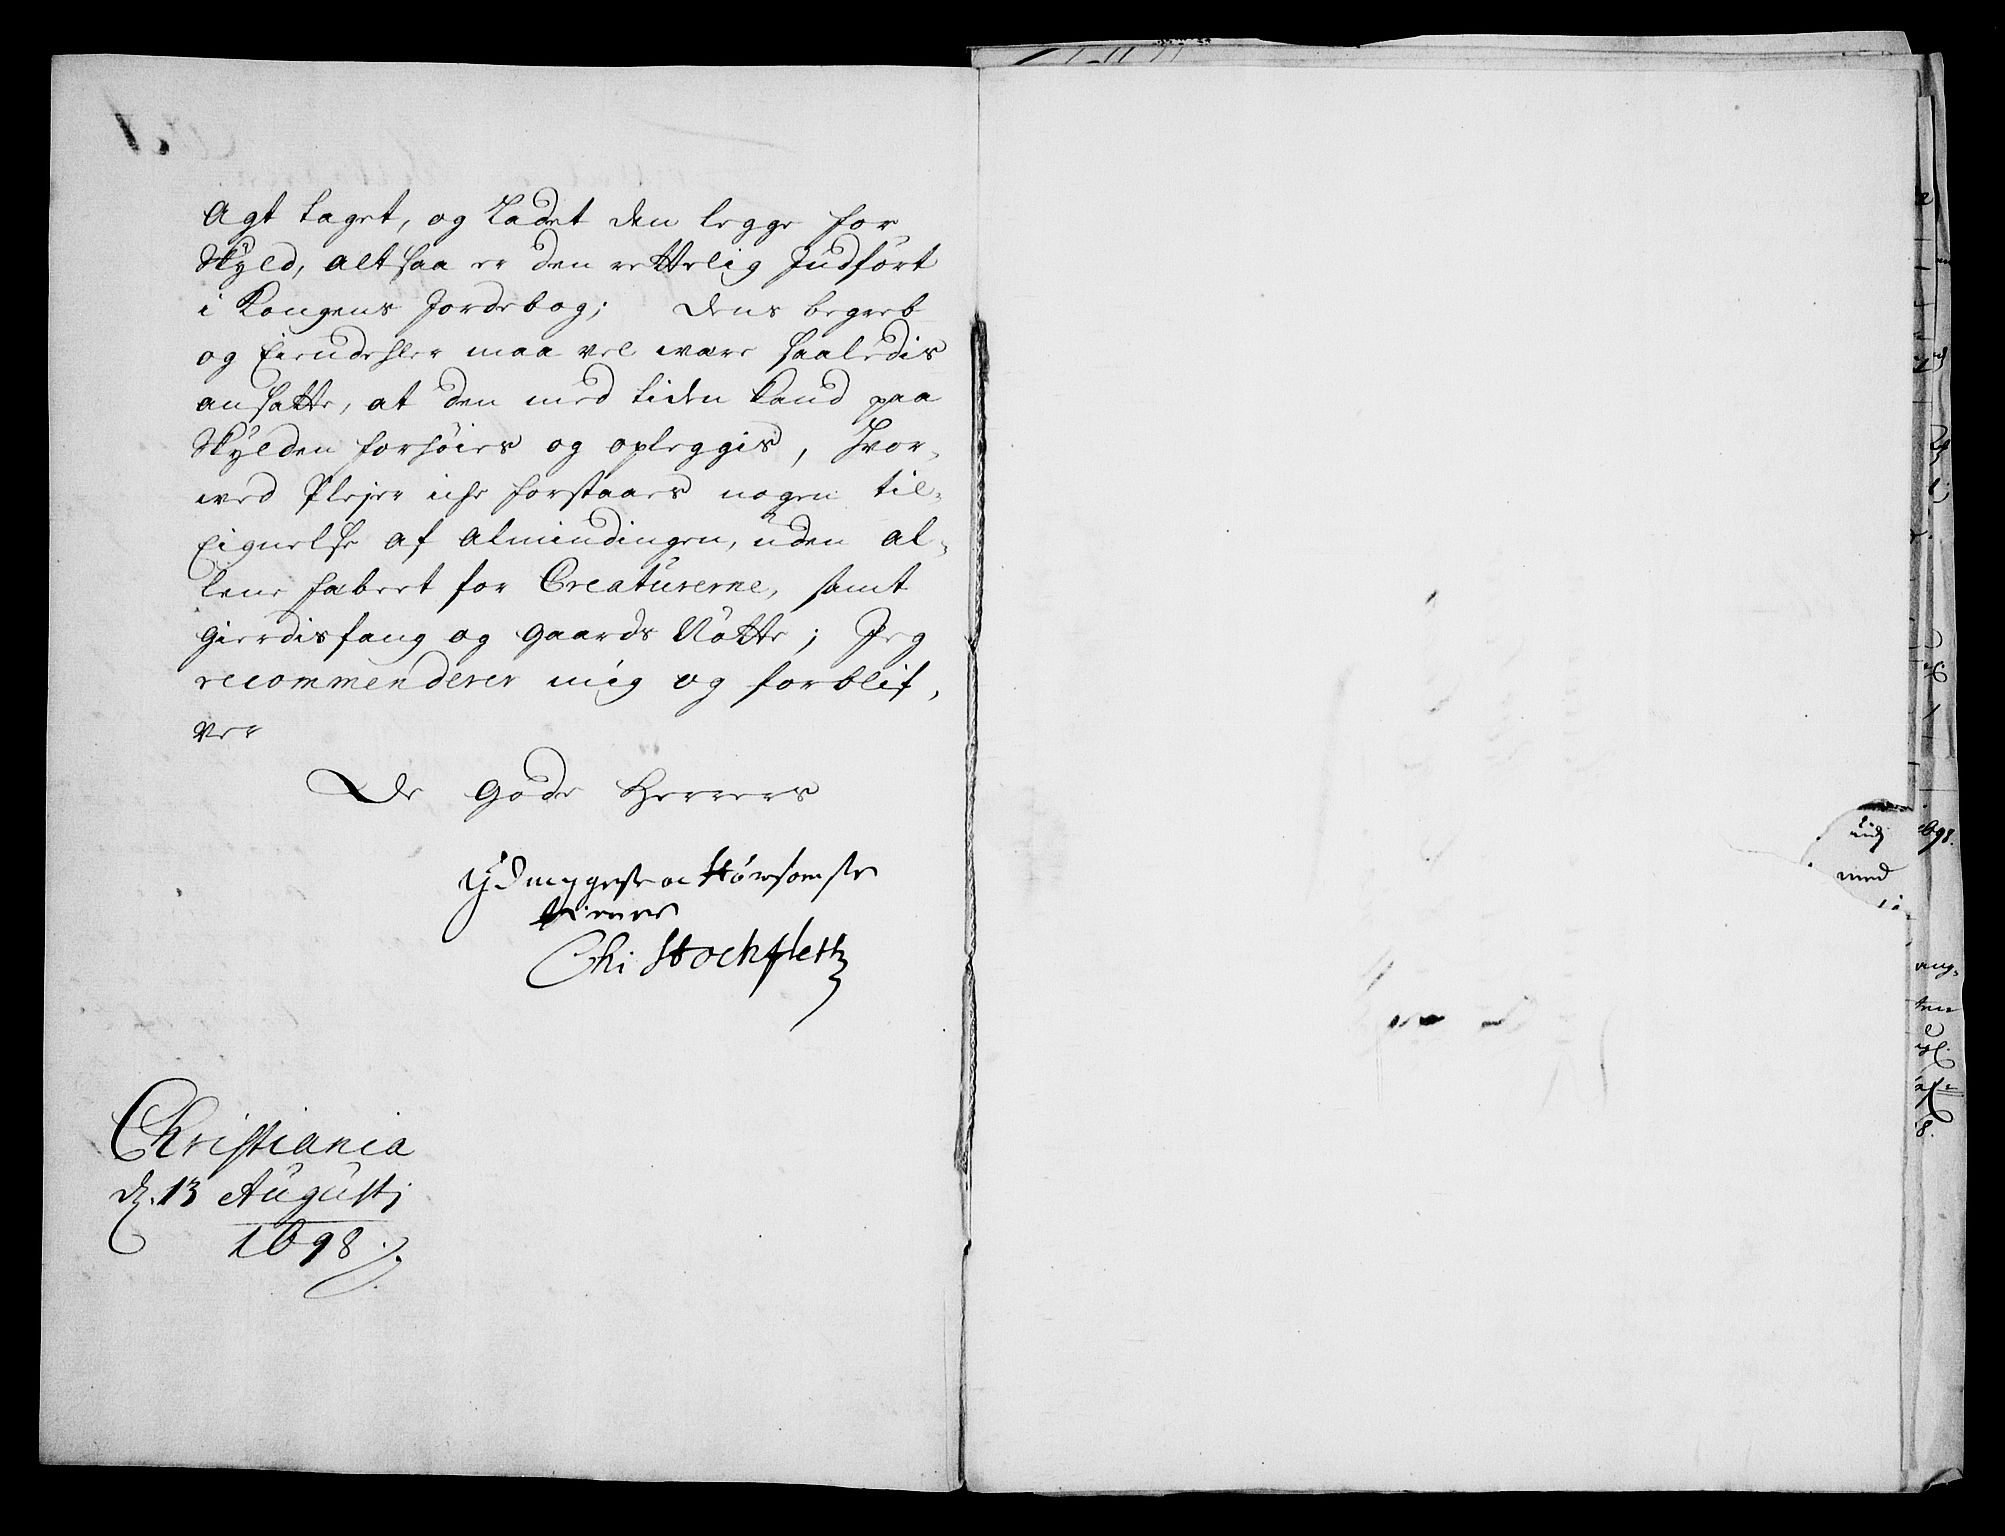 Agt taget, og Ladet den legge for
Skyld, alt saa er den rettelig Indført
i Kongens Jordebog; Dens begreb
og Eiendehler maa vel være saaledis
ansatte, at den med tiden kand paa
Skylden forhöies og opleggis, hvor-
ved Plejer iche forstaaes nogen til-
Eignelse af Almindingen, uden al-
lene fæbeet for Creaturerne, samt
gierdisfang og gaards Nötte; Jeg
recommenderer mig og forblif-
ver
De gode Herrers
Ydmygeste oc
tienner
Chr Stockfleth
Christiania
d. 13 Augustj
1698
1698.
med